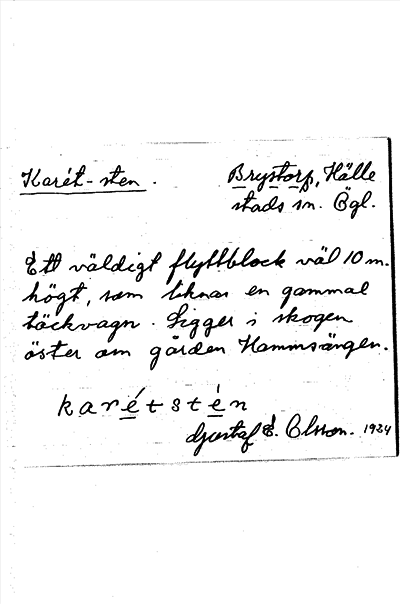 Karét-sten. Brystorp, Hälle
stads sn. Ögl.
Ett väldigt flyttblock väl 10 m.
högt, som liknar en gammal
täckvagn. Ligger i skogen
öster om gården Hammsängen.
karétstén
Gustaf E. Olsson. 1934